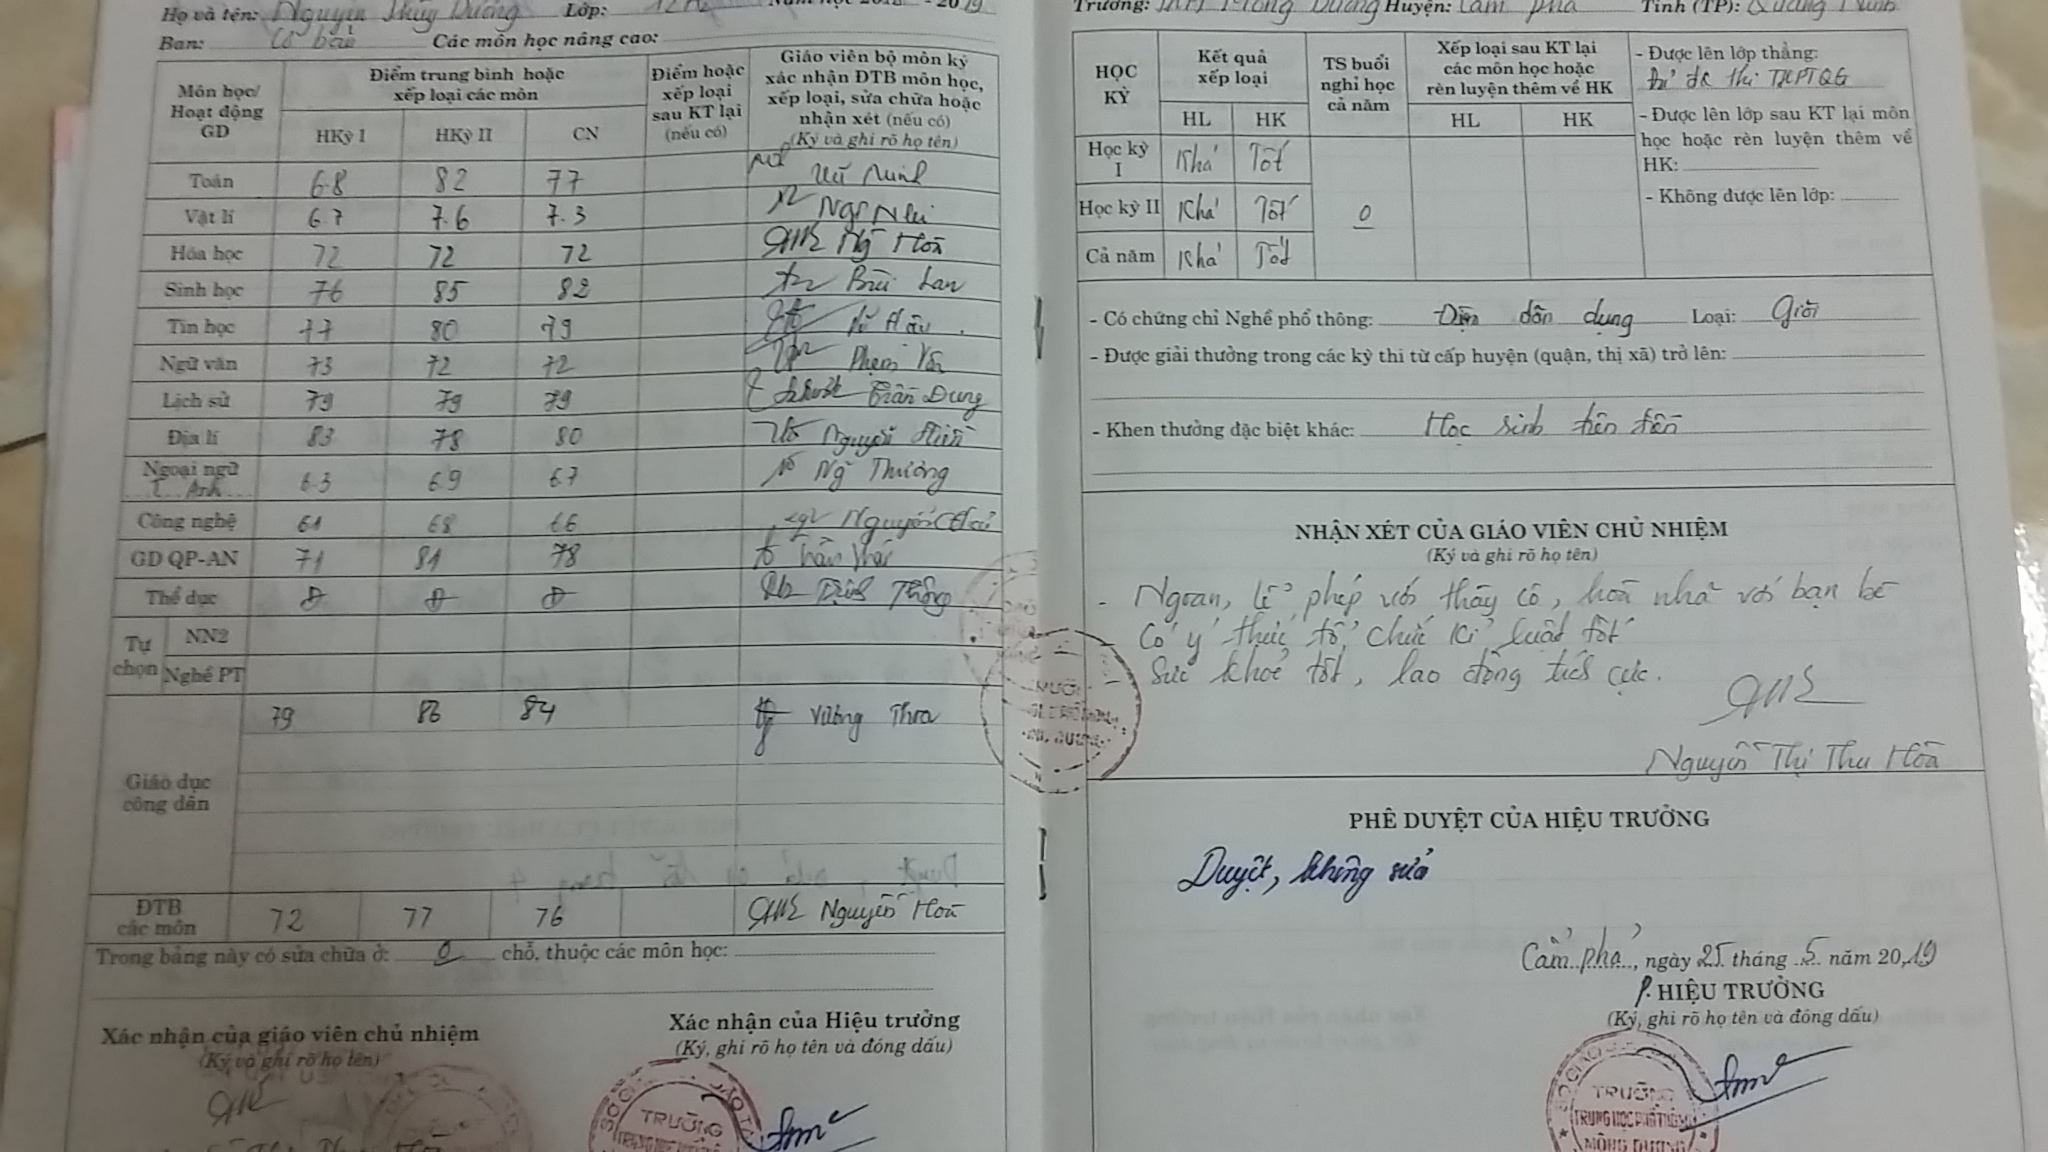 Họ và tên: Nguyễn Thùy Dương Lớp: 12
Ban: Cơ bản Các môn học nâng cao:
Môn học/ Hoạt động GD
Điểm trung bình hoặc xếp loại các môn
HKỳ I HKỳ II CN
Điểm hoặc xếp loại sau KT lại (nếu có)
Giáo viên bộ môn ký xác nhận ĐTB môn học, xếp loại, sửa chữa hoặc nhận xét (nếu có)
(Ký và ghi rõ họ tên)
Toán 6.8 82 77
Vật lí 6.7 7.6 7.3
Hóa học 72 72 72 Ng Hoà
Sinh học 76 85 82 Bùi Lan
Tin học 77 80 79
Ngữ văn 73 72 72
Lịch sử 79 79 79 Trần Dung
Địa lí 83 78 80 Nguyễn
Ngoại ngữ Anh 63 69 67 Thường
Công nghệ 61 68 66 Nguyễn
GD QP-AN 71 81 78
Thể dục Đ Đ Đ
Tự chọn
NN2
Nghề PT
Giáo dục công dân 79 86 84 Vương Thoa
ĐTB các môn 72 77 76 Nguyễn Hoà
Trong bảng này có sửa chữa ở: 0 chỗ, thuộc các môn học:
Xác nhận của giáo viên chủ nhiệm
(Ký và ghi rõ họ tên)
Xác nhận của Hiệu trưởng
(Ký, ghi rõ họ tên và đóng dấu)
TRƯỜNG
Trường: THPT Mông Dương Huyện: Cẩm Phả Tỉnh (TP): Quảng Ninh
HỌC KỲ
Kết quả xếp loại
HL HK
TS buổi nghỉ học cả năm
Xếp loại sau KT lại các môn học hoặc rèn luyện thêm về HK
HL HK
Học kỳ I Khá Tốt
Học kỳ II Khá Tốt 0
Cả năm Khá Tốt
- Được lên lớp thẳng:
Đủ đk thi THPTQG
- Được lên lớp sau KT lại môn học hoặc rèn luyện thêm về HK:
- Không được lên lớp:
- Có chứng chỉ Nghề phổ thông: Điện dân dụng Loại: Giỏi
- Được giải thưởng trong các kỳ thi từ cấp huyện (quận, thị xã) trở lên:
- Khen thưởng đặc biệt khác: Học sinh tiên tiến
NHẬN XÉT CỦA GIÁO VIÊN CHỦ NHIỆM
(Ký và ghi rõ họ tên)
- Ngoan, lễ phép với thầy cô, hòa nhã với bạn bè
Có ý thức tổ chức kỉ luật tốt
Sức khoẻ tốt, lao động tích cực.
Nguyễn Thị Thu Hoà
PHÊ DUYỆT CỦA HIỆU TRƯỞNG
Duyệt, không sửa
Cẩm phả, ngày 25 tháng 5 năm 2019
P. HIỆU TRƯỞNG
(Ký, ghi rõ họ tên và đóng dấu)
TRƯỜNG
TRUNG HỌC PHỔ THÔNG
MÔNG DƯƠNG